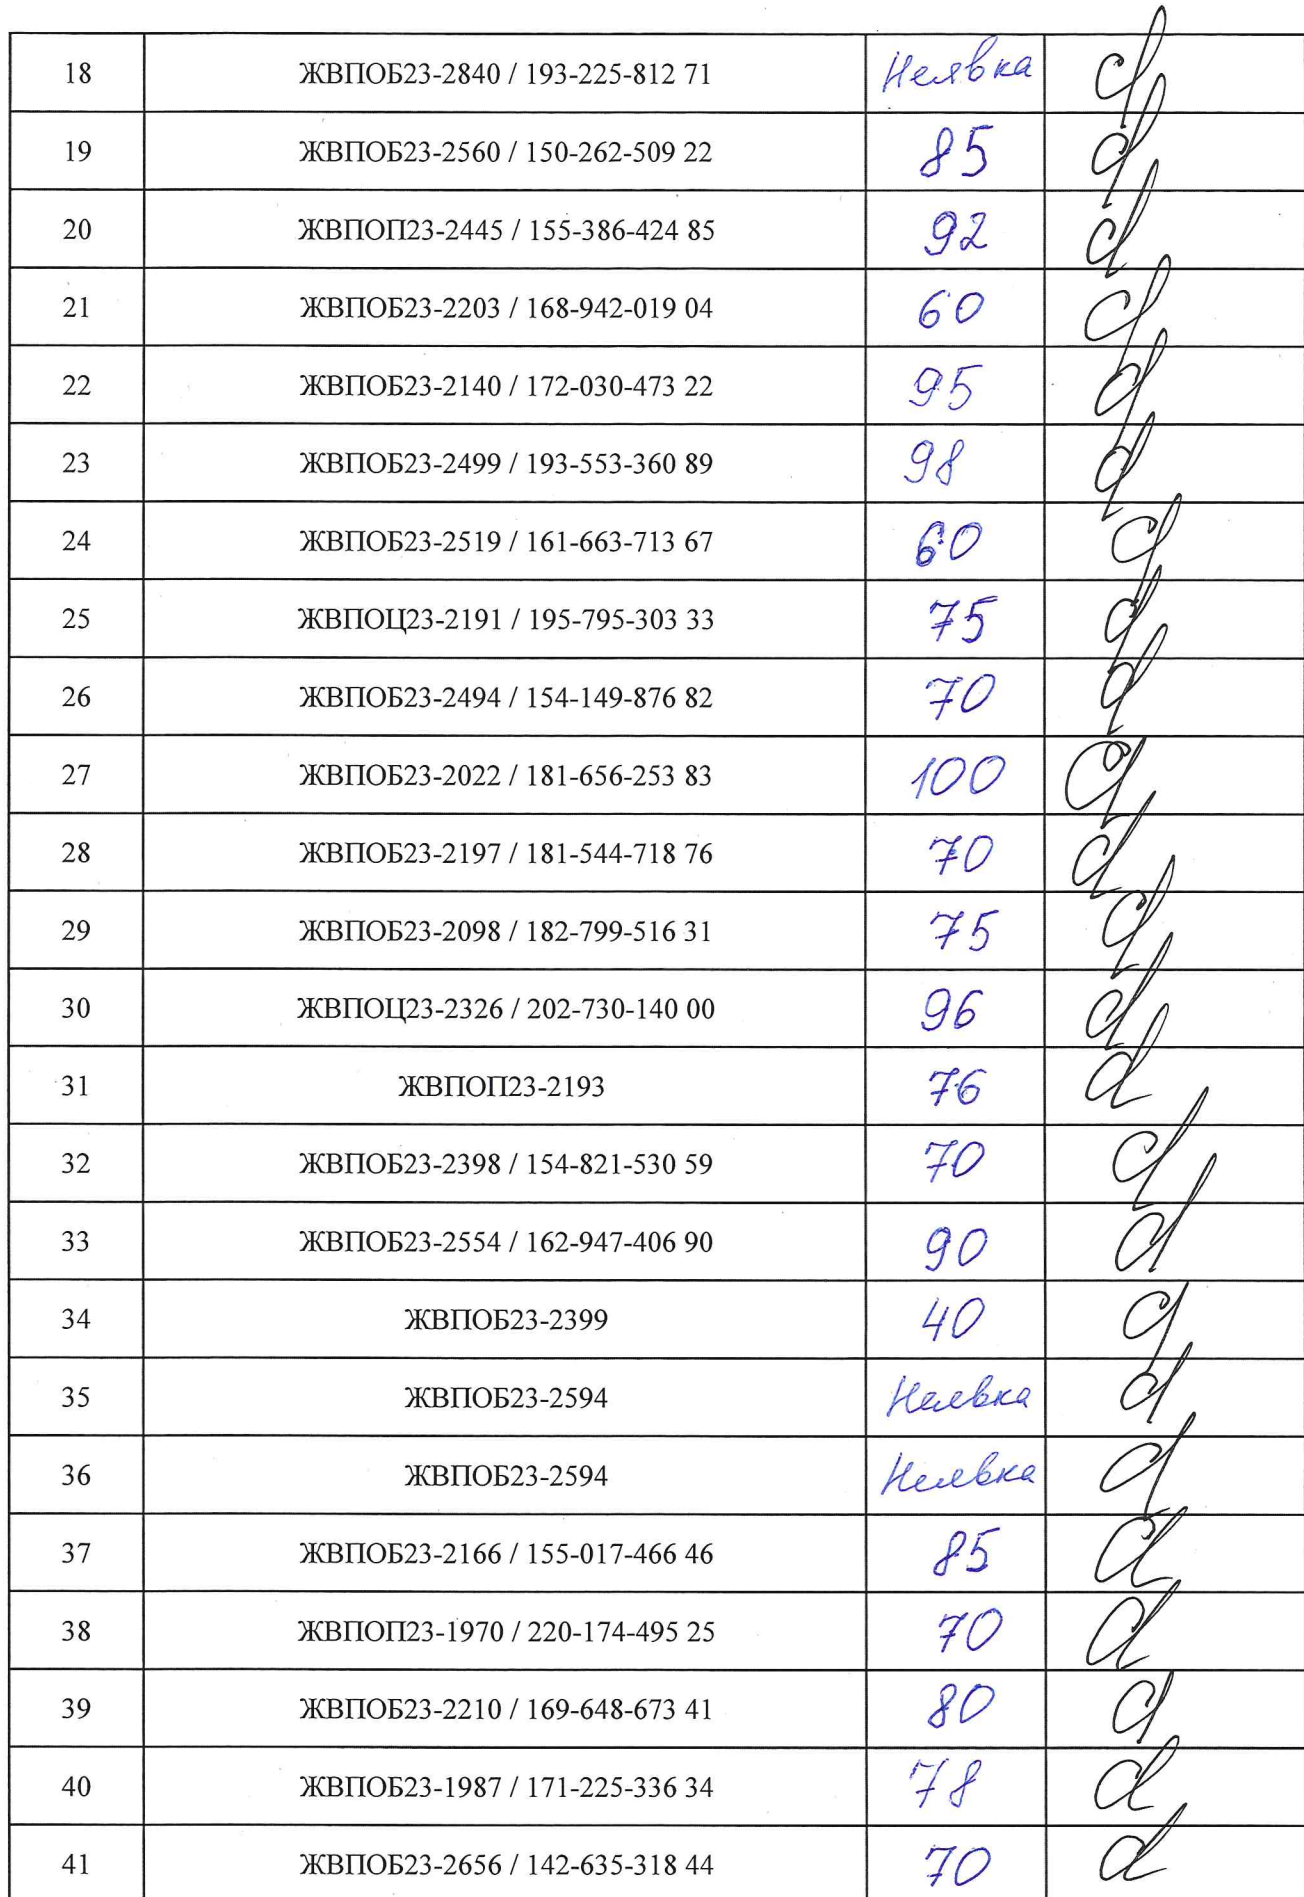 18 ЖВПОБ23-2840 / 193-225-812 71 Неявка
19 ЖВПОБ23-2560 / 150-262-509 22 85
20 ЖВПОП23-2445 / 155-386-424 85 92
21 ЖВПОБ23-2203 / 168-942-019 04 60
22 ЖВПОБ23-2140 / 172-030-473 22 95
23 ЖВПОБ23-2499 / 193-553-360 89 98
24 ЖВПОБ23-2519 / 161-663-713 67 60
25 ЖВПОЦ23-2191 / 195-795-303 33 75
26 ЖВПОБ23-2494 / 154-149-876 82 70
27 ЖВПОБ23-2022 / 181-656-253 83 100
28 ЖВПОБ23-2197 / 181-544-718 76 70
29 ЖВПОБ23-2098 / 182-799-516 31 75
30 ЖВПОЦ23-2326 / 202-730-140 00 96
31 ЖВПОП23-2193 76
32 ЖВПОБ23-2398 / 154-821-530 59 70
33 ЖВПОБ23-2554 / 162-947-406 90 90
34 ЖВПОБ23-2399 40
35 ЖВПОБ23-2594 Неявка
36 ЖВПОБ23-2594 Неявка
37 ЖВПОБ23-2166 / 155-017-466 46 85
38 ЖВПОП23-1970 / 220-174-495 25 70
39 ЖВПОБ23-2210 / 169-648-673 41 80
40 ЖВПОБ23-1987 / 171-225-336 34 78
41 ЖВПОБ23-2656 / 142-635-318 44 70